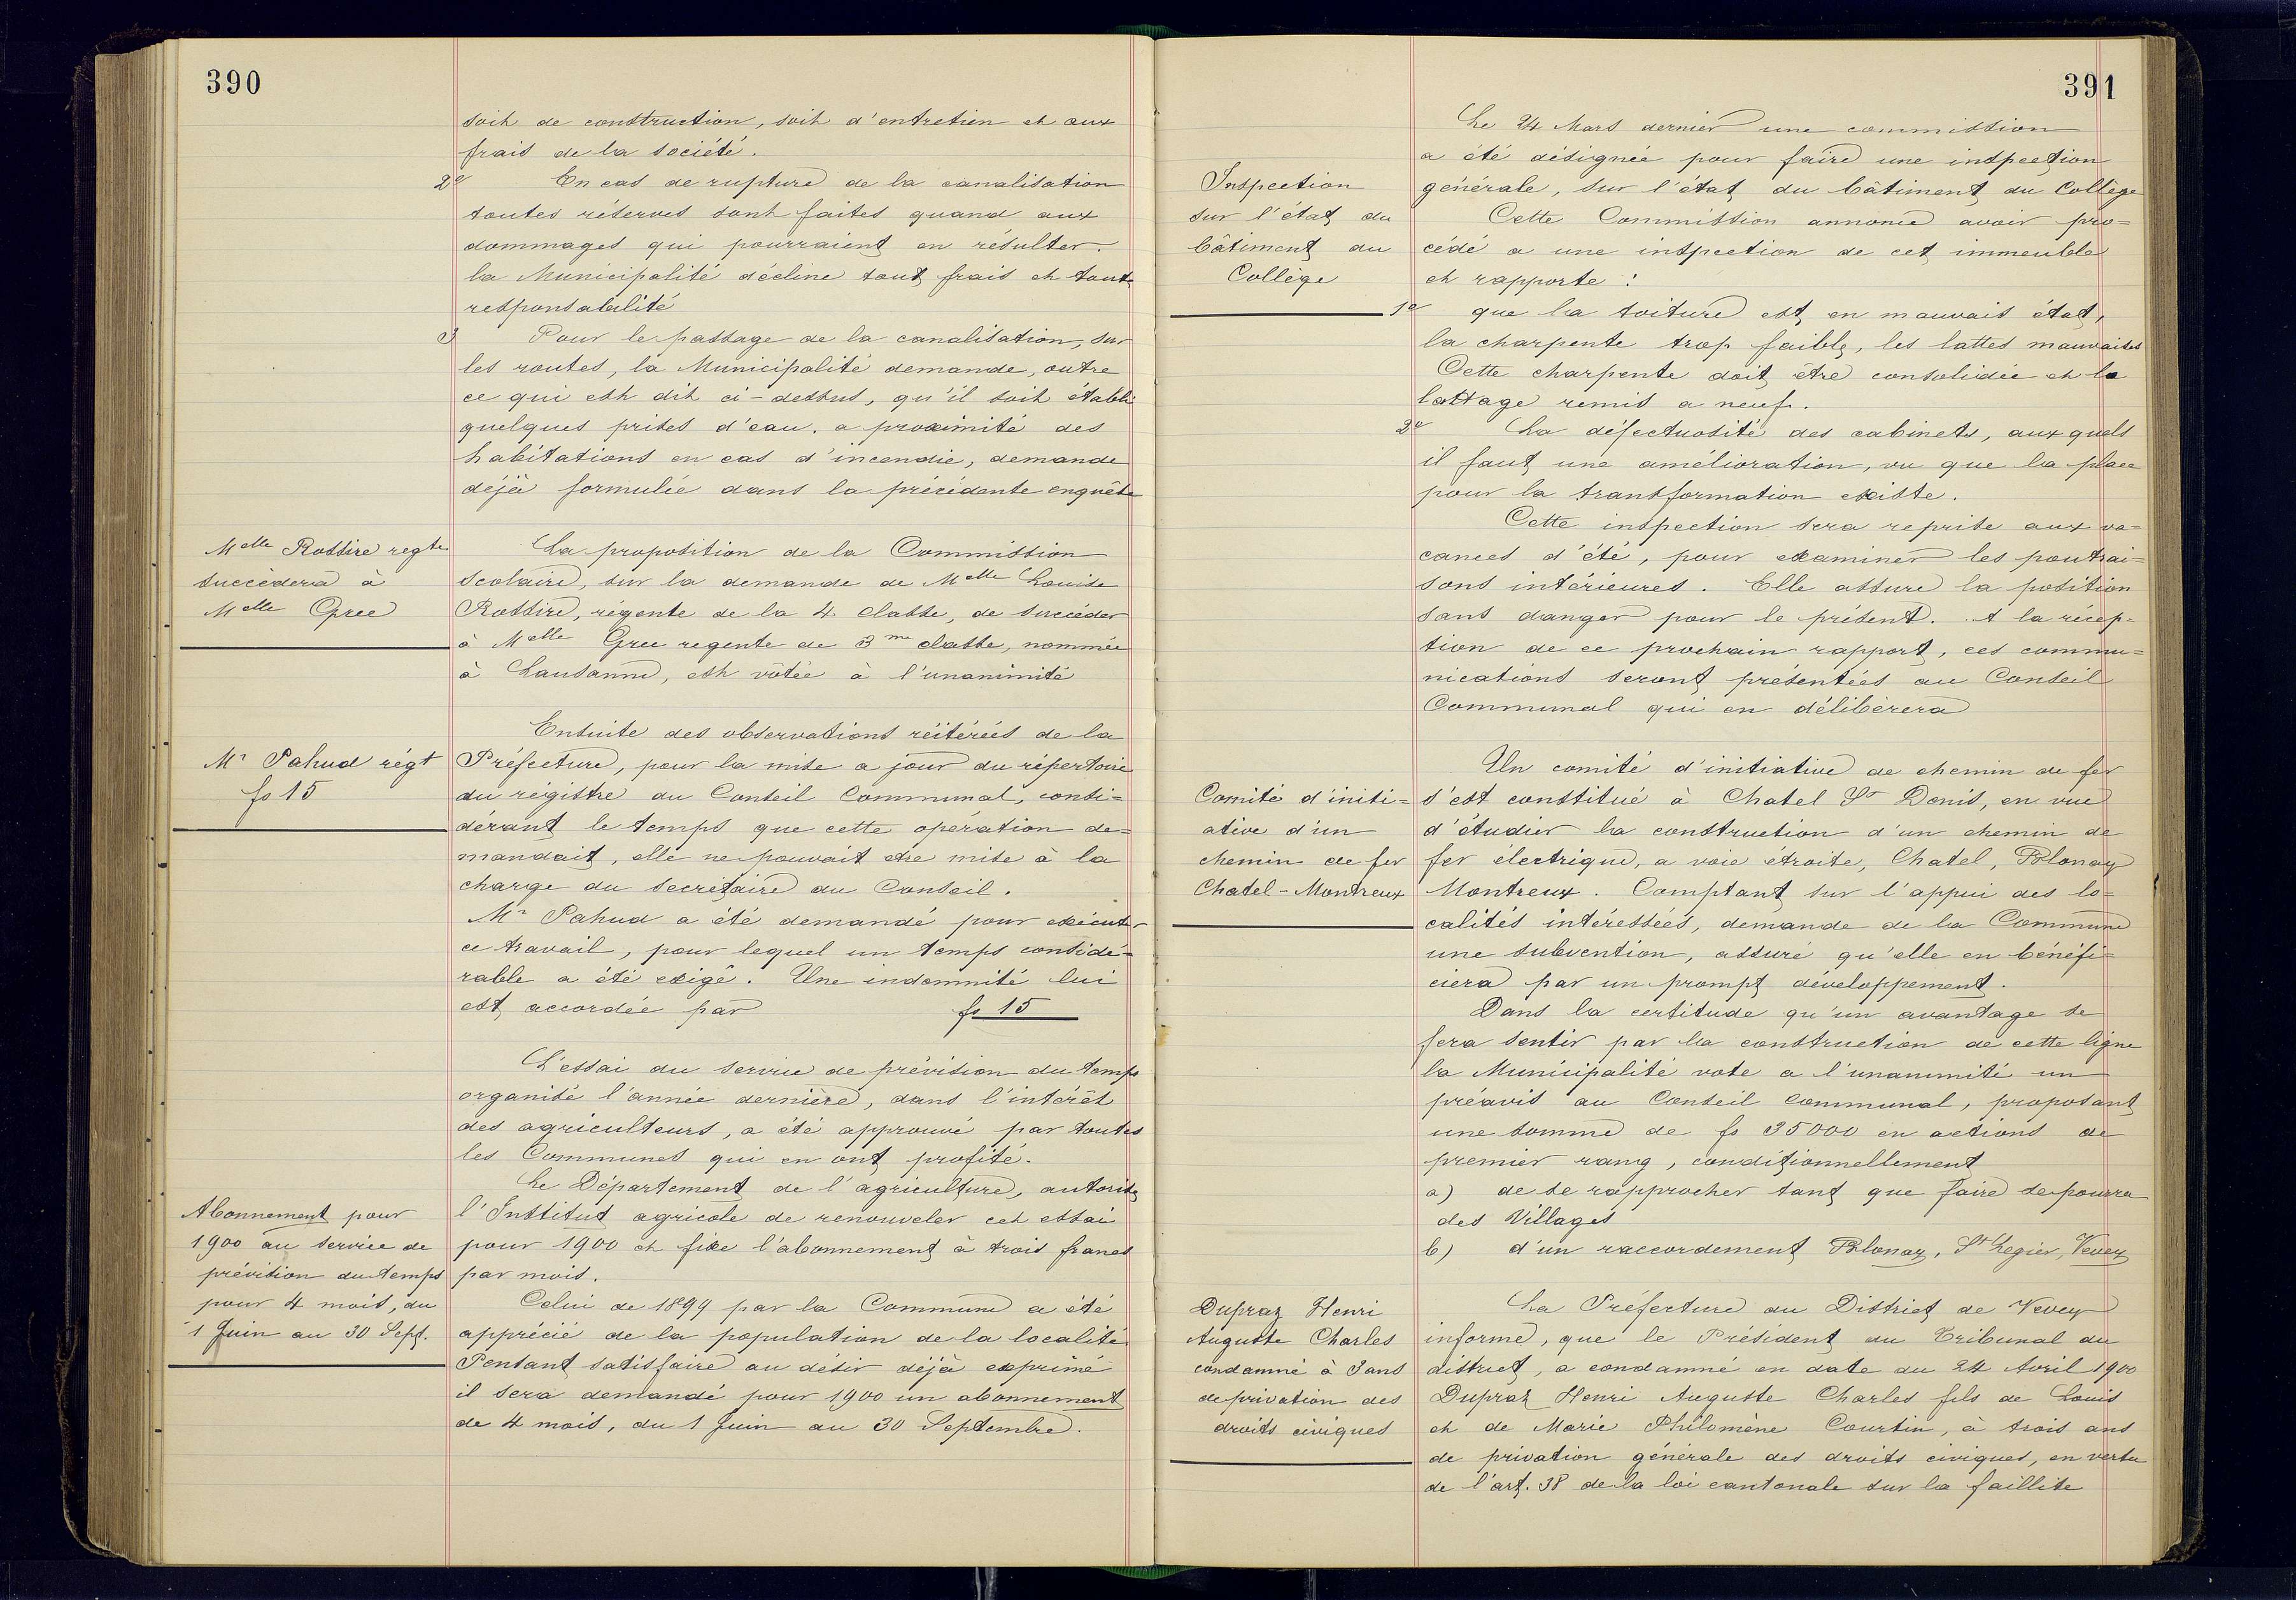 390
soit de construction, soit d'entretien et aux
frais de la société.
2° En cas de rupture de la canalisation
toutes réserves sont faites quand aux
dommages qui pourraient en résulter.
la Municipalité décline tout frais et toute
responsabilité
3 Pour le passage de la canalisation, sur
les routes, la Municipalité demande, outre
ce qui est dit ci-dessus, qu'il soit établi
quelques prises d'eau, a proximité des
habitations en cas d'incendie, demande
déjà formulée dans la précédente enquête
Melle Rossire regte
succèdera à
Melle Gree
La proposition de la Commission
scolaire, sur la demande de Melle Louise
Rossire, régente de la 4 classe, de succéder
à Melle Gree regente de 3me classe, nommée
à Lausanne, est vôtée à l'unanimité
Mr Pahud régt
fs 15
Ensuite des observations réitérées de la
Préfecture, pour la mise a jour du répertoire
du régistre du Conseil Communal, consi=
dérant le temps que cette opération de=
mandait, elle ne pouvait etre mise à la
charge du secrétaire du Conseil.
Mr Pahud a été demandé pour exécuter
ce travail, pour lequel un temps considé=
rable a été exigé. Une indemnité lui
est accordée par fs 15
L'essai du service de prévision du temps
organisé l'année dernière, dans l'intérêt
des agriculteurs, a été approuvé par toutes
les Communes qui en ont profité.
Le Département de l'agriculture, autorise
l'Institut agricole de renouveler cet essai
pour 1900 et fixe l'abonnement à trois francs
par mois.
Abonnement pour
1900 au service de
prévision du temps
pour 4 mois, du
1 Juin au 30 Sept.
Celui de 1899 par la Commune a été
apprécié de la population de la localité
Pensant satisfaire au désir déjà exprimé
il sera demandé pour 1900 un abonnement
de 4 mois, du 1 Juin au 30 Septembre.
391
Le 24 Mars dernier une commission
a été désignée pour faire une inspection
générale, sur l'état du bâtiment du Collège
Inspection
sur l'état du
bâtiment du
Collège
Cette Commission annonce avoir pro=
cédé a une inspection de cet immeuble
et rapporte :
1° que la toiture est en mauvais état,
la charpente trop faible, les lattes mauvaises
Cette charpente doit être consolidée et le
lattage remis a neuf.
2° La défectuosité des cabinets, aux quels
il faut une amélioration, vu que la place
pour la transformation existe.
Cette inspection sera reprise aux va=
cances d'été, pour examiner les poutrai=
sons intérieures. Elle assure la position
sans danger pour le présent. A la récep=
tion de ce prochain rapport, ces commu=
nications seront présentées au Conseil
Communal qui en délibèrera
Comité d'initi=
ative d'un
chemin de fer
Chatel-Montreux
Un comité d'initiative de chemin de fer
s'est constitué à Chatel St Denis, en vue
d'étudier la construction d'un chemin de
fer électrique, a voie étroite, Chatel, Blonay
Montreux. Comptant sur l'appui des lo=
calités intéressées, demande de la Commune
une subvention, assuré qu'elle en bénéfi=
ciera par un prompt développement.
Dans la certitude qu'un avantage se
fera sentir par la construction de cette ligne
la Municipalité vote a l'unanimité un
préavis au Conseil communal, proposant
une somme de fs 35000 en actions de
premier rang, conditionnellement
a) de se rapprocher tant que faire se pourra
des Villages
b) d'un raccordement Blonay, St Legier, Vevey
Dupraz Henri
Auguste Charles
condamné à 3 ans
de privation des
droits civiques
La Préfecture du District de Vevey
informe, que le Président du Tribunal du
district, a condamné en date du 24 Avril 1900
Dupraz Henri Auguste Charles fils de Louis
et de Marie Philomène Courtin, à trois ans
de privation générale des droits civiques, en vertu
de l'art. 38 de la loi cantonale sur la faillite